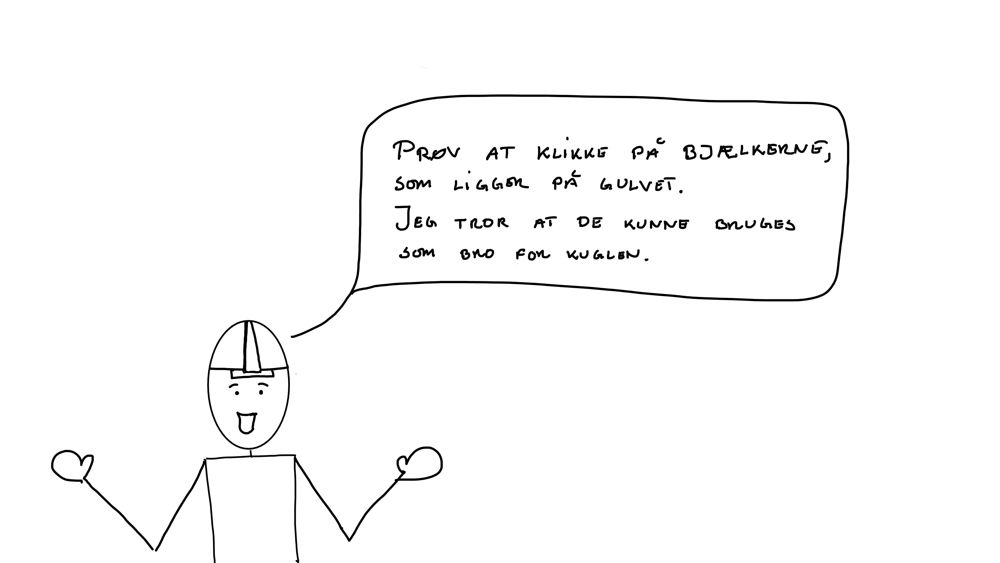 PRØV AT KLIKKE PÅ BJÆLKERNE,
SOM LIGGER PÅ GULVET.
JEG TROR AT DE KUNNE BRUGES
SOM BRO FOR KUGLEN.